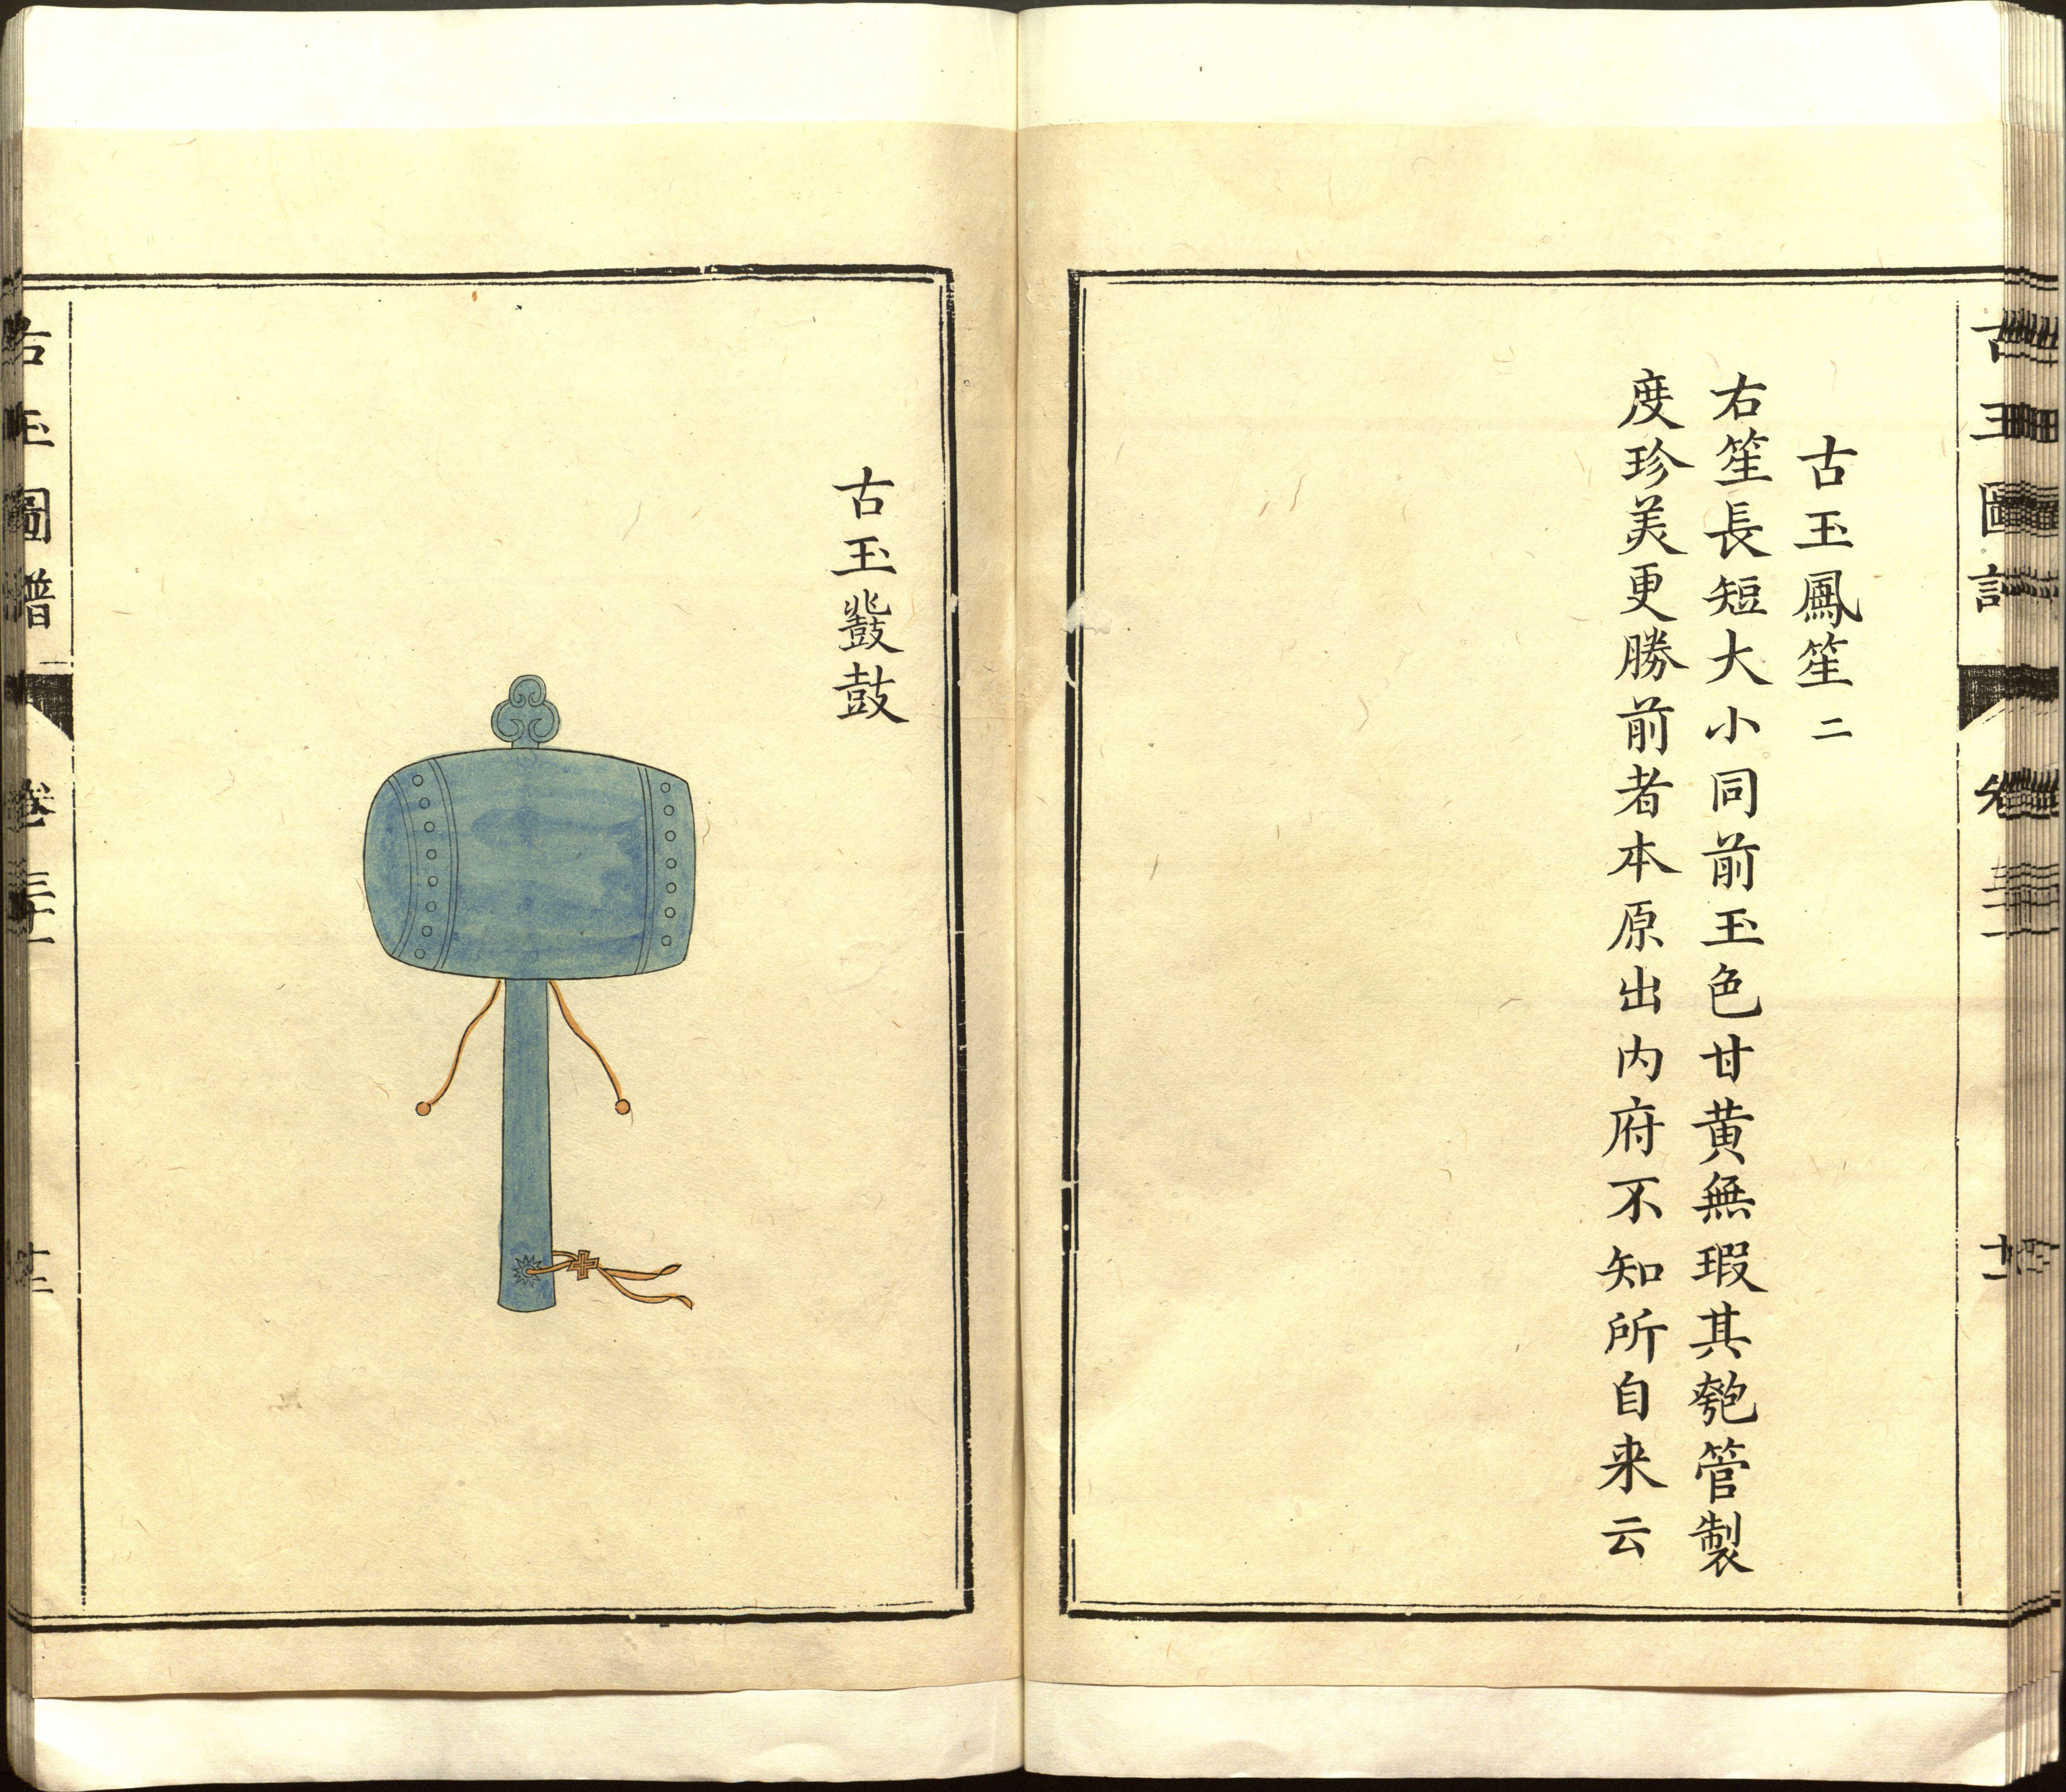 古玉鳳笙二
右笙長短大小同前玉色甘黄無瑕其匏管製
度珍美更勝前者本原出内府不知所自来云
古玉鼗鼓
古玉圖譜
卷三十一